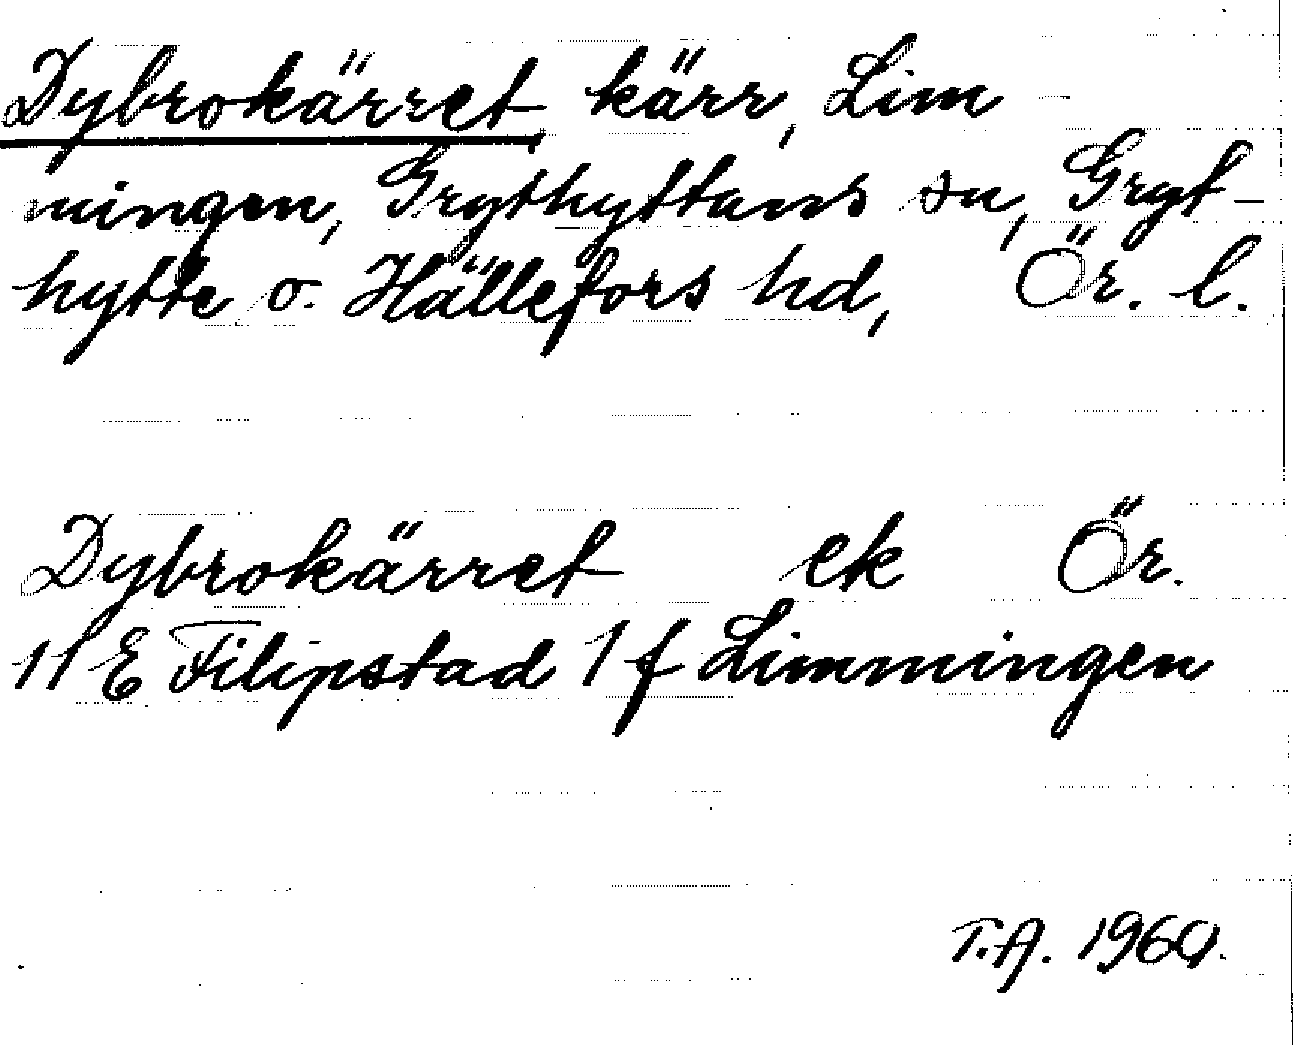 Dybrokärret, kärr, Lim-
mingen, Grythyttans sn, Gryt-
hytte o. Hällefors hd, Ör. l.
Dybrokärret ek Ör.
11 E Filipstad 1 f Limmingen
T.A. 1960.